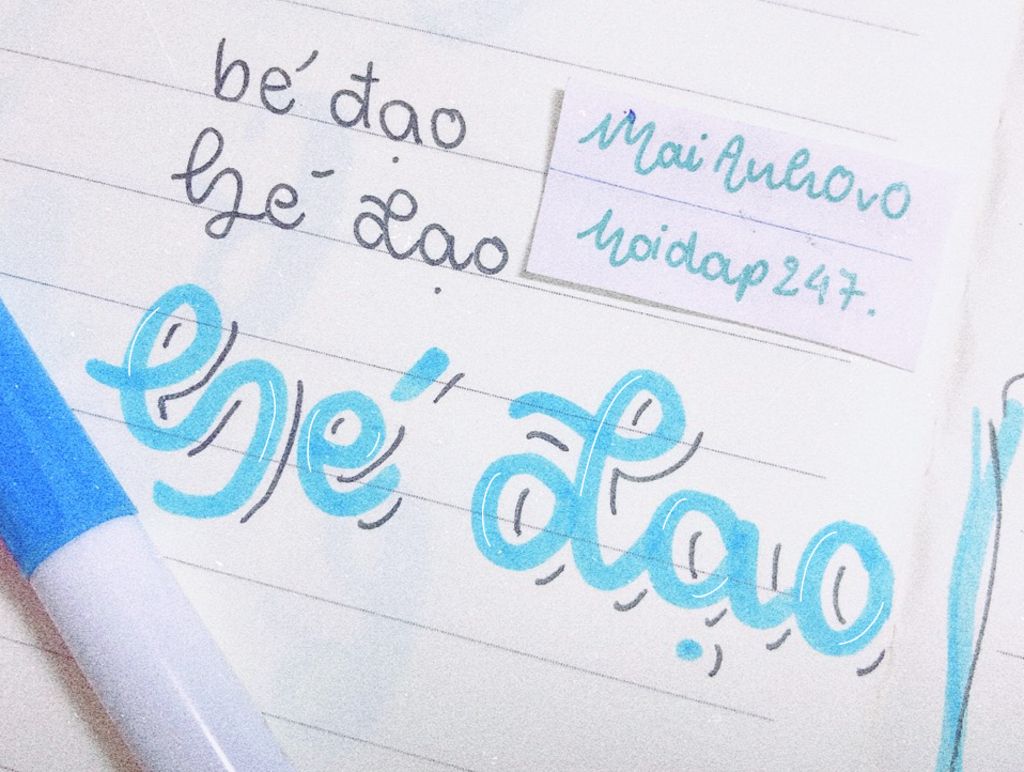 bé đạo
bé đạo
MaiAnhOvO
hoidap247.
bé đạo